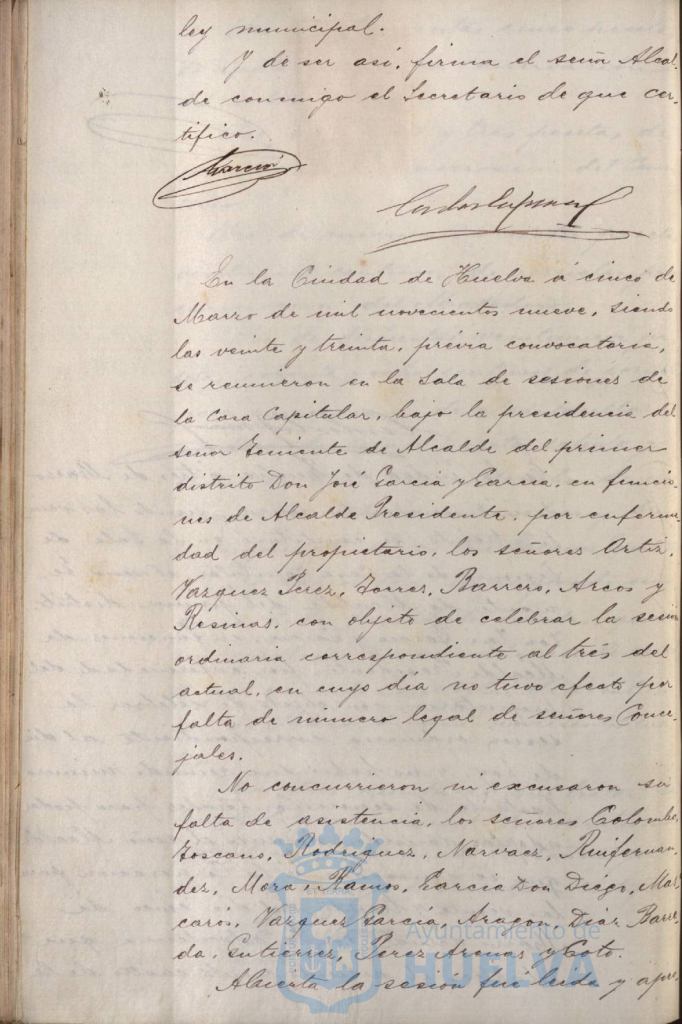 ley municipal.
Y de ser así, firma el señor Alcal-
de conmigo el Secretario de que cer-
tifico.
Garcia
En la Ciudad de Huelva á cinco de
Marzo de mil novecientos nueve, siendo
las veinte y treinta, prévia convocatoria,
se reunieron en la Sala de sesiones de
la Casa Capitular, bajo la presidencia del
señor Teniente de Alcalde del primer
distrito Don José Garcia y Garcia, en funcio-
nes de Alcalde Presidente, por enferme-
dad del propietario, los señores Ortiz,
Vazquez Perez, Torres, Barrero, Arcos y
Resinas, con objeto de celebrar la sesión
ordinaria correspondiente al trés del
actual, en cuyo día no tuvo efecto por
falta de número legal de señores Conce-
jales.
No concurrieron ni excusaron su
falta de asistencia, los señores Colombo,
Toscano, Rodriguez, Narvaez, Ruifernan-
dez, Mora, Ramos, Garcia Don Diégo, Mal-
caros, Vazquez Garcia, Aragon, Diaz Barre-
da, Gutierrez, Perez Arenas y Coto.
Abierta la sesión fué leida y apro-
Ayuntamiento de
HUELVA